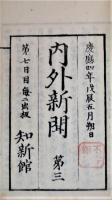 慶應四年戊辰五月朔日
内外新聞 第三
第七日目每ニ出板
知新館